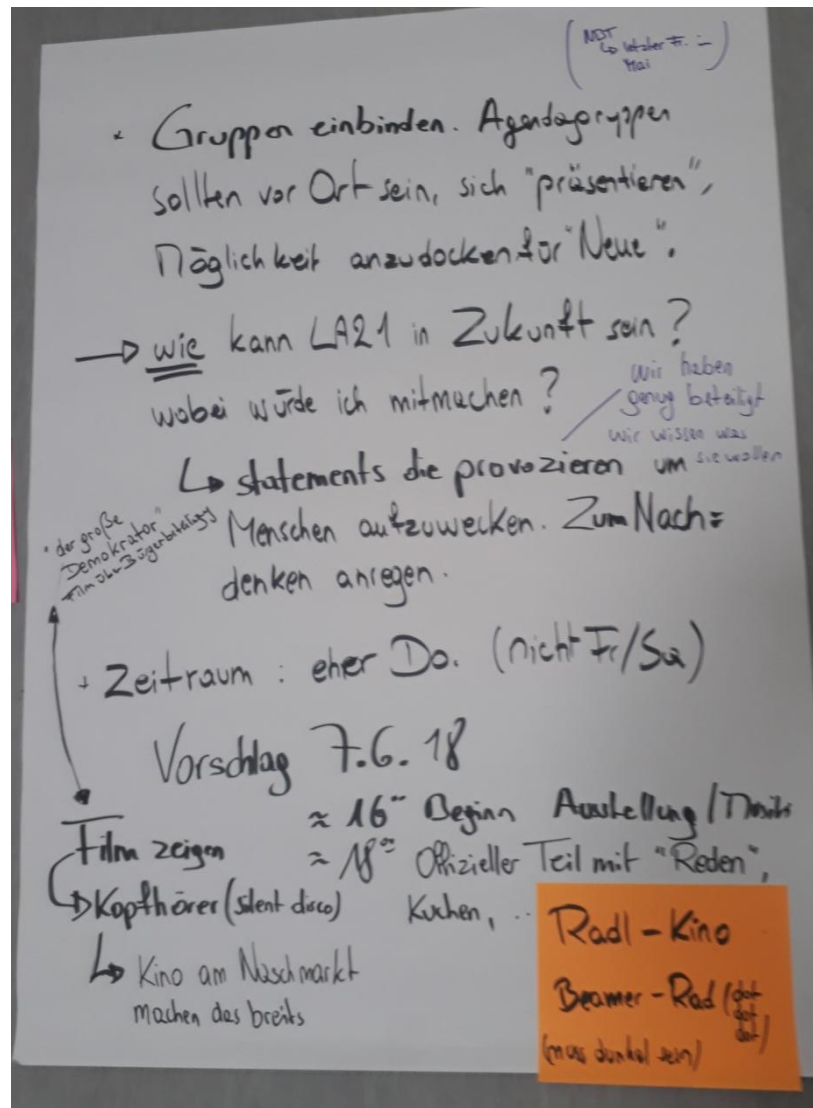 (NDT
↳ letzter Fr. im
Mai)
* Gruppen einbinden. Agendagruppen
sollten vor Ort sein, sich "präsentieren",
Möglichkeit anzudocken für "Neue".
→ wie kann LA21 in Zukunft sein?
wobei würde ich mitmachen?
wir haben
genug beteiligt
wir wissen was
sie wollen
↳ statements die provozieren um
Menschen aufzuwecken. Zum Nach=
denken anregen.
"der große
Demokrator"
Film über Bürgerbeteiligg
+ Zeitraum: eher Do. (nicht Fr/Sa)
Vorschlag 7.6.18
≈ 16°° Beginn Ausstellung/
≈ 18°° Offizieller Teil mit "Reden",
Kuchen, ..
Film zeigen
↳ Kopfhörer (silent disco)
↳ Kino am Naschmarkt
machen das breits
Radl-Kino
Beamer-Rad (dot
dot
dot)
(muss dunkel sein)